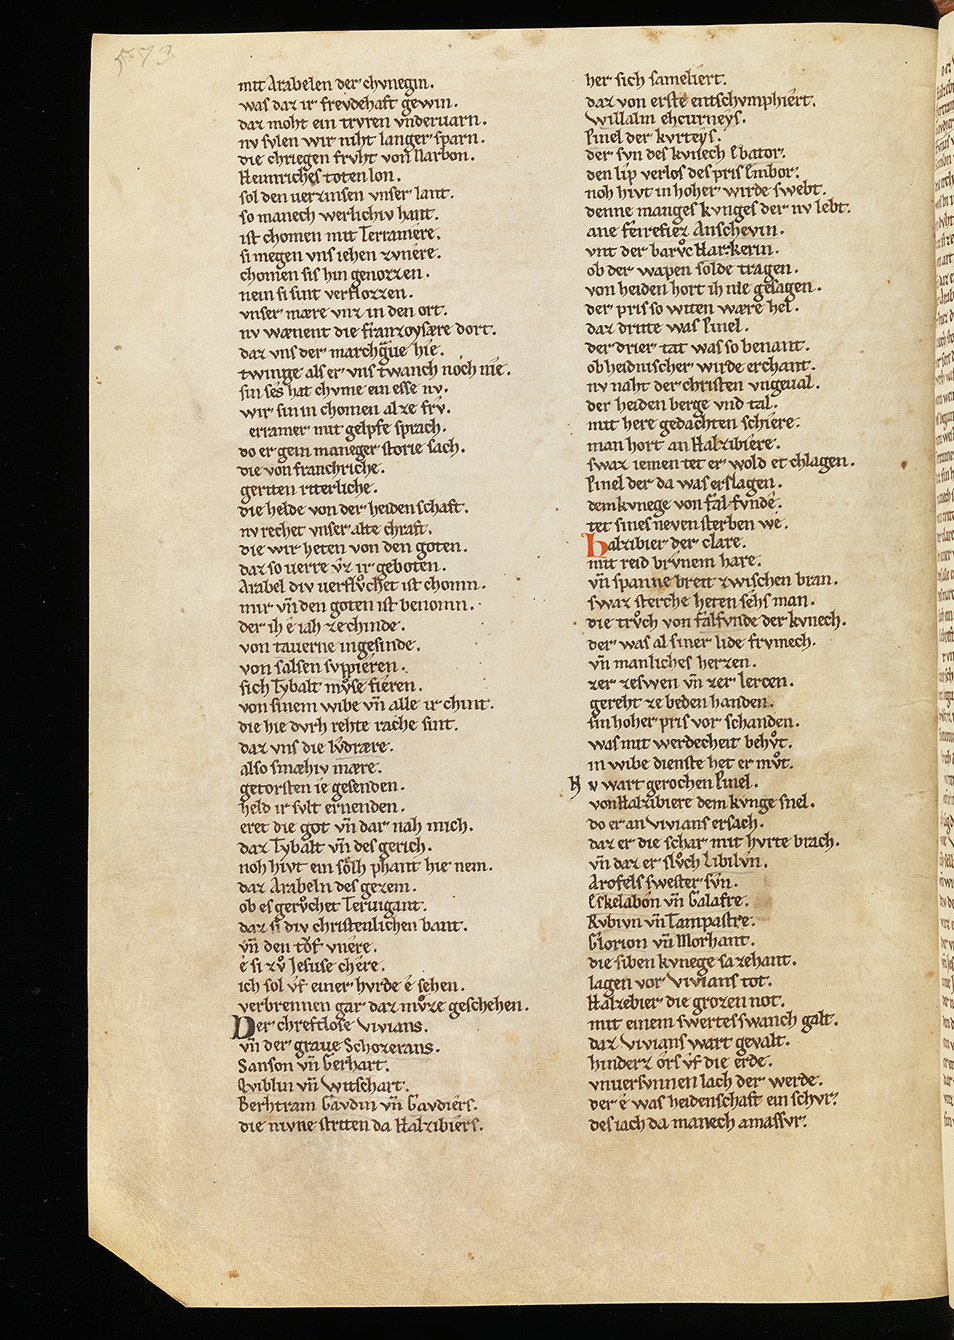 573
mit Arabelen der chvnegin.
was daz ir frevdehaft gewin.
daz moht ein trvren vnderuarn.
nv svlen wir niht langer sparn.
die chriegen frvht von Narbon.
Heimriches toten lon.
sol den uerzinsen vnser lant.
so manech werlichiv hant.
ist chomen mit Terramere.
si megen vns iehen zvnere.
chomen sis hin genozzen.
nein si sint verflozzen.
vnser mære vnz in den ort.
nv wænent die franzoysære dort.
daz vns der marchg̃ue hie.
twinge als er vns twanch noch nie.
sin ses hat chvme ein esse nv.
wir sin in chomen al ze frv.
erramer mit gelpfe sprach.
do er gein maneger storie sach.
die von franchriche.
geriten riterliche.
die helde von der heidenschaft.
nv rechet vnser alte chraft.
die wir heten von den goten.
daz so uerre v̂z ir geboten.
Arabel div uerflv̊chet ist chomn.
mir vñ den goten ist benomn.
der ih e iah ze chinde.
von tauerne ingesinde.
von salsen svppieren.
sich Tybalt mv̊se fieren.
von sinem wibe vñ alle ir chint.
die hie dvrh rehte rache sint.
daz vns die lv̊drære.
also smæhiv mære.
getorsten ie gesenden.
held ir svlt ernenden.
eret die got vñ dar nah mich.
daz Tybalt vñ des gerich.
noh hivt ein sölh phant hie nem.
daz Arabeln des gezem.
ob es gerv̊chet Teruigant.
daz si div christenlichen bant.
vñ den tǒf vnere.
e si zv̊ Jesuse chere.
ich sol v̂f einer hvrde e sehen.
verbrennen gar daz mv̊ze geschehen.
Der chreftlose Vivians.
vñ der graue Schozerans.
Sanson vñ Gerhart.
Qviblin vñ Witschart.
Berhtram Gavdin vñ Gavdiers.
die nivne striten da Halzibiers.
her sich sameliert.
daz von erste entschvmphiert.
Willalm ehcurneys.
Pinel der kvrteys.
der svn des kvnech Kator.
den lip verlos des pris Embor.
noh hivt in hoher wirde swebt.
denne manges kvnges der nv lebt.
ane feirefiez Anschevin.
vnt der barv̊c Hackerin.
ob der wapen solde tragen.
von heiden hort ih nie gesagen.
der pris so witen wære hel.
daz dritte was Pinel.
der drier tat was so benant.
ob heidnischer wirde erchant.
nv naht der christen vngeual.
der heiden berge vnd tal.
mit here gedachten schiere.
man hort an Halzibiere.
swaz iemen tet er wold et chlagen.
Pinel der da was erslagen.
dem kvnege von fal fvnde.
tet sines neven sterben we.
halzibier der clare.
mit reid brvnem hare.
vñ spanne breit zwischen bran.
swaz sterche heten sehs man.
die trv̊ch von falfvnde der kvnech.
der was al siner lide frvmech.
vñ manliches herzen.
zer zeswen vñ zer lercen.
gereht ze beden handen.
sin hoher pris vor schanden.
was mit werdecheit behv̊t.
in wibe dienste het er mv̊t.
Nv wart gerochen Pinel.
von Halzibiere dem kvnge snel.
do er an Vivians ersach.
daz er die schar mit hvrte brach.
vñ daz er slv̊ch Libilvn.
Arofels swester svn.
Eskelabon vñ Galafre.
Rvbivn vñ Tampastre.
Glorion vñ Morhant.
die siben kvnege sa zehant.
lagen vor Vivians tot.
Halzebier die grozen not.
mit einem swertes swanch galt.
daz Vivians wart gevalt.
hinderz ors v̂f die erde.
vnuersvnnen lach der werde.
der e was heidenschaft ein schvr.
des iach da manech amassvr.